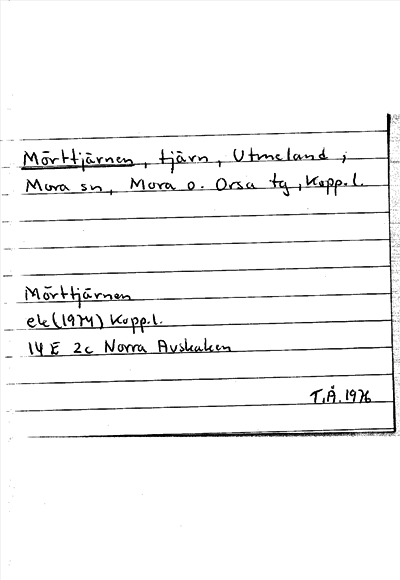 Mörttjärnen, tjärn, Utmeland,
Mora sn, Mora o. Orsa tg, Kopp.l.
Mörttjärnen
ek (1974) Kopp.l.
14 E 2c Norra Avskaken
T.Å. 1976